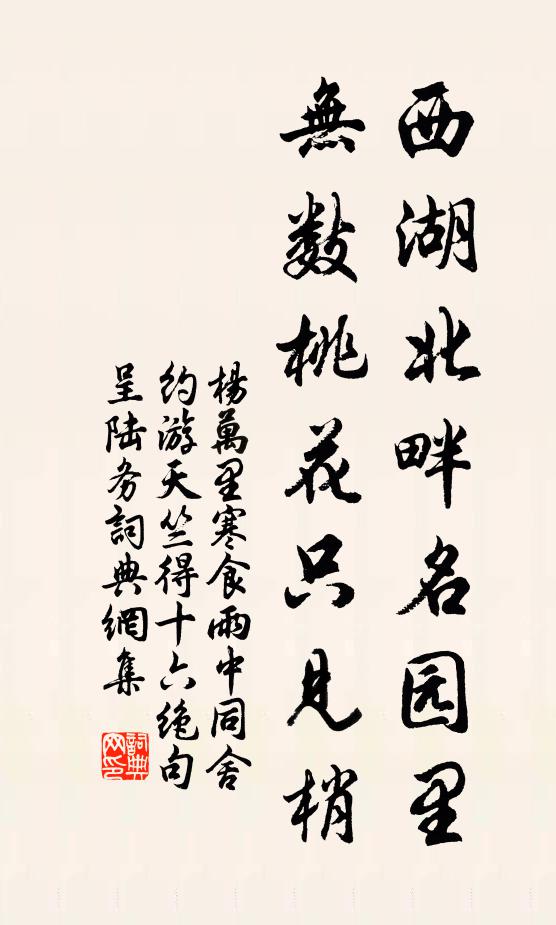 西湖北畔名园里
無数桃花只見梢
楊萬里寒食雨中同舍
约游天竺得十六绝句
呈陆务詞典網集
詞典网印